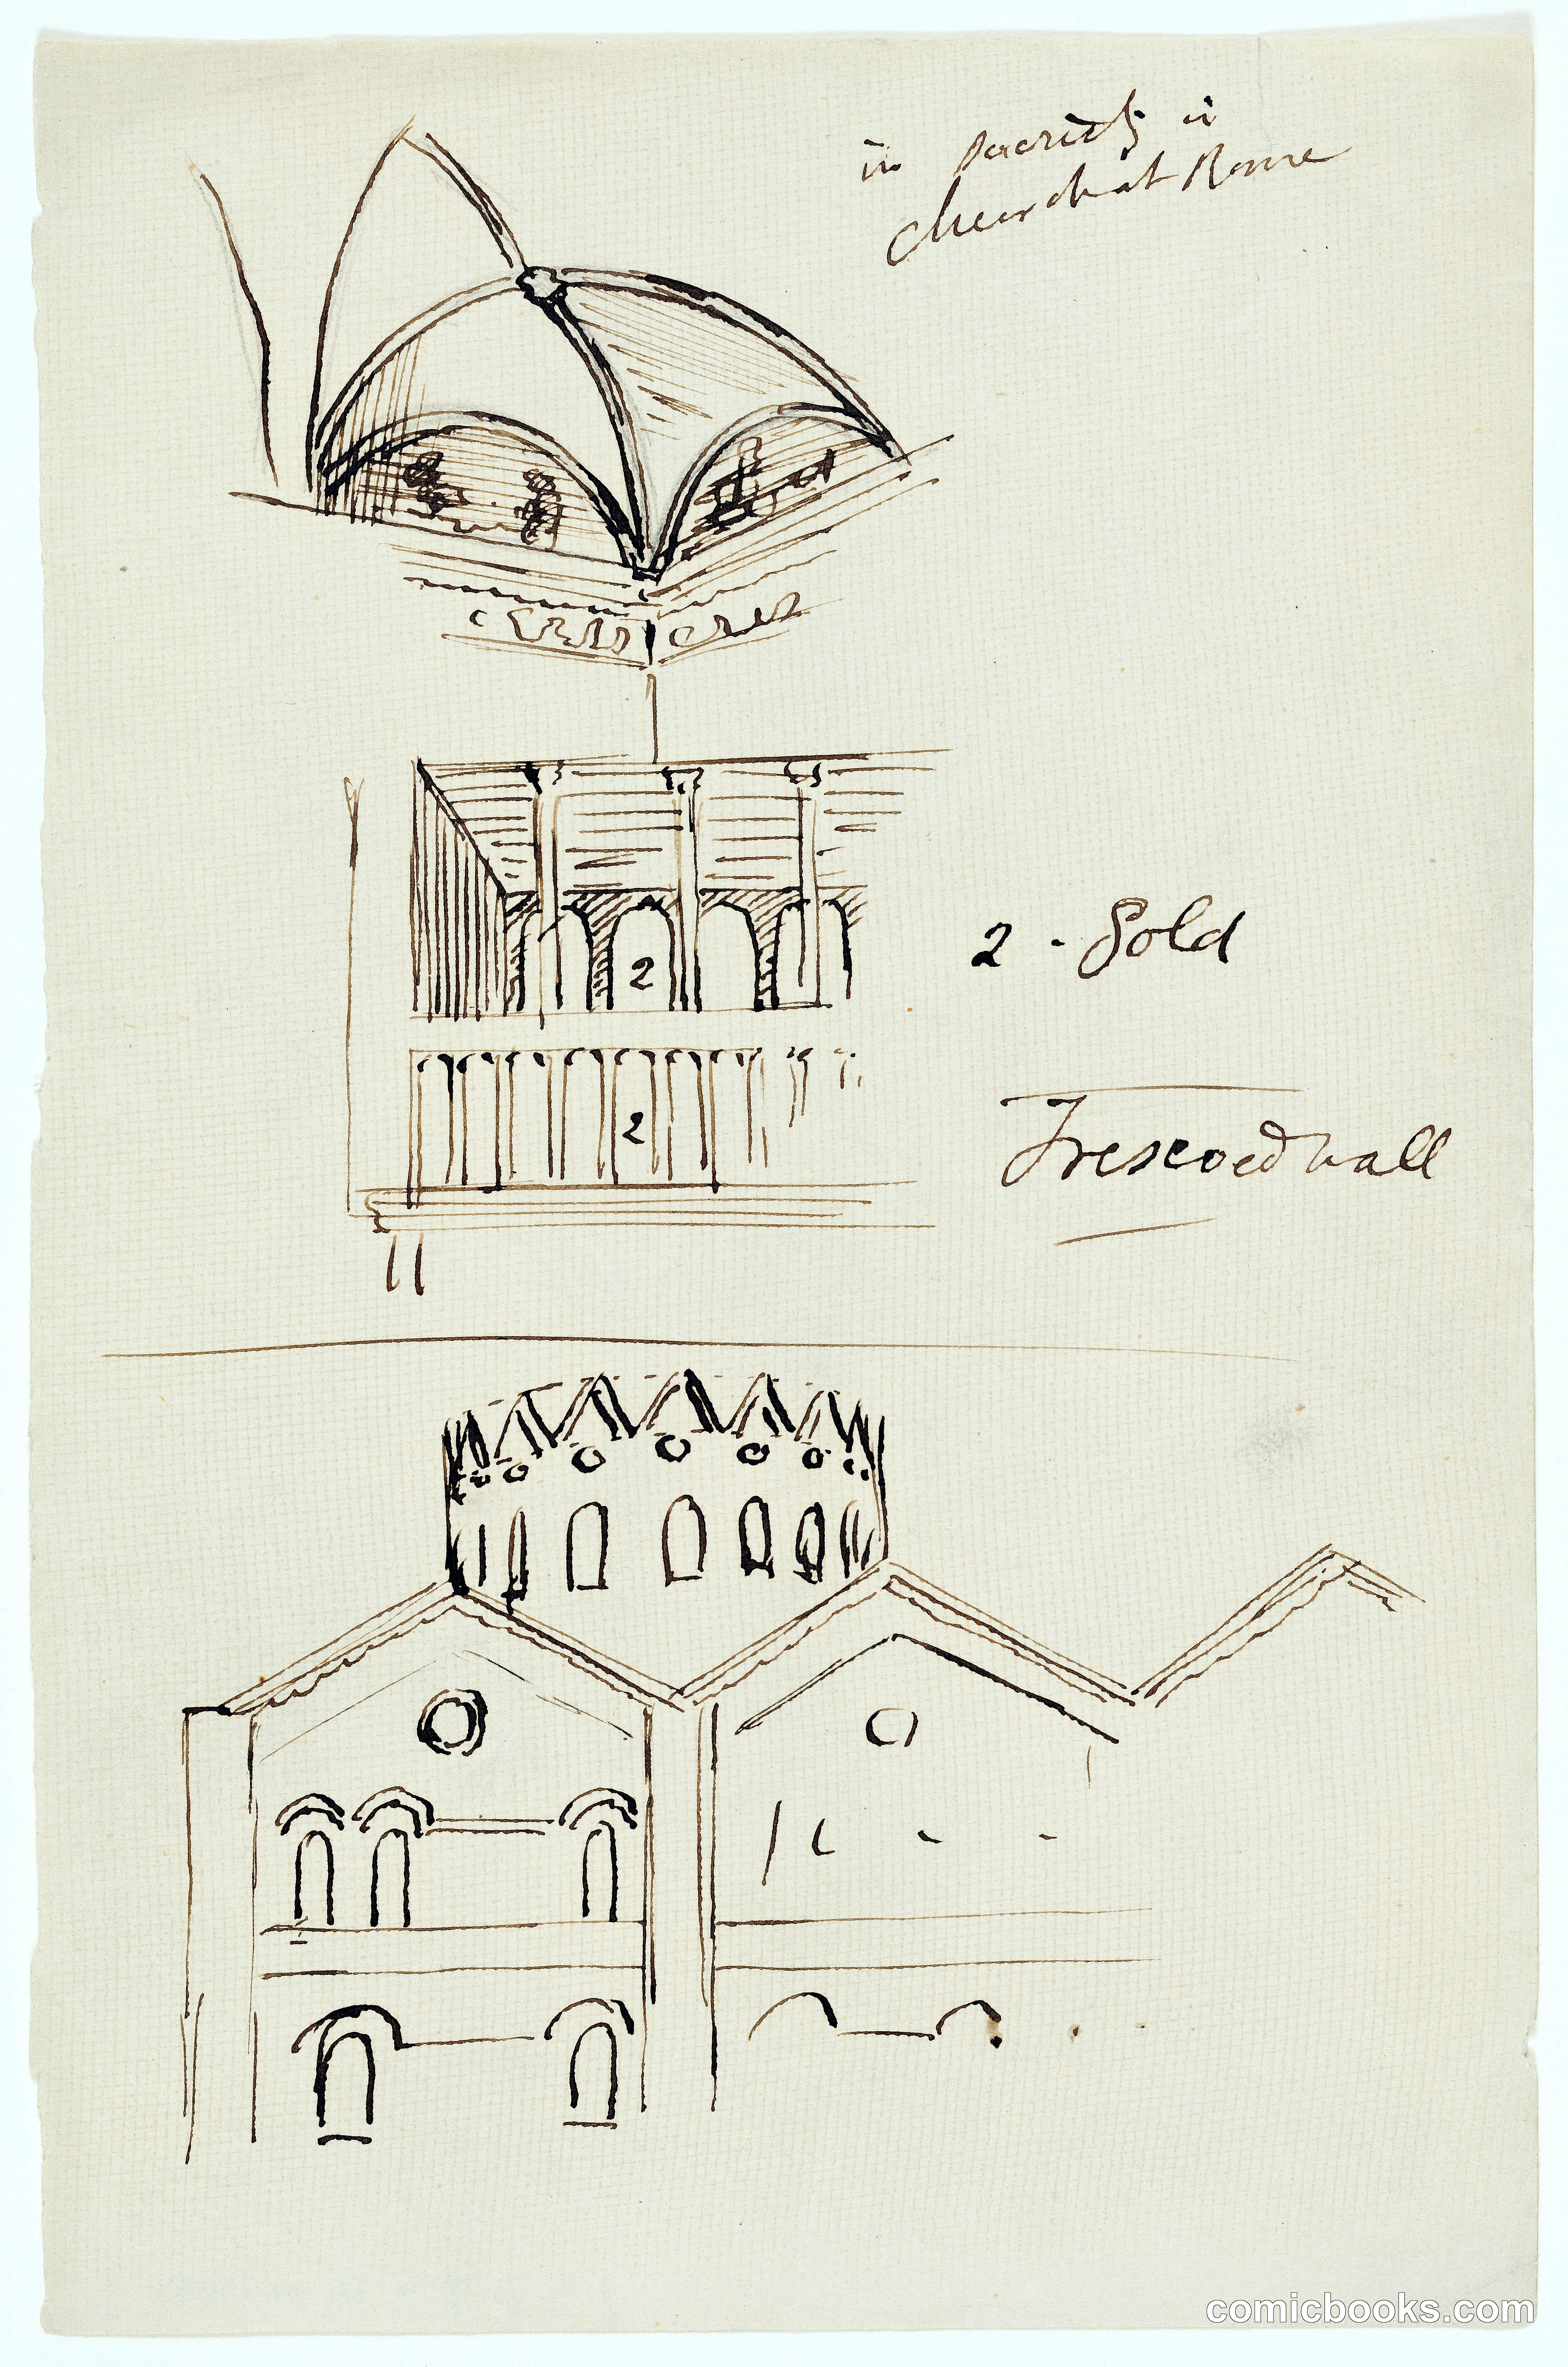 in sacristy in
church at Rome
2 - Gold
2
2
Frescoed wall
comicbooks.com